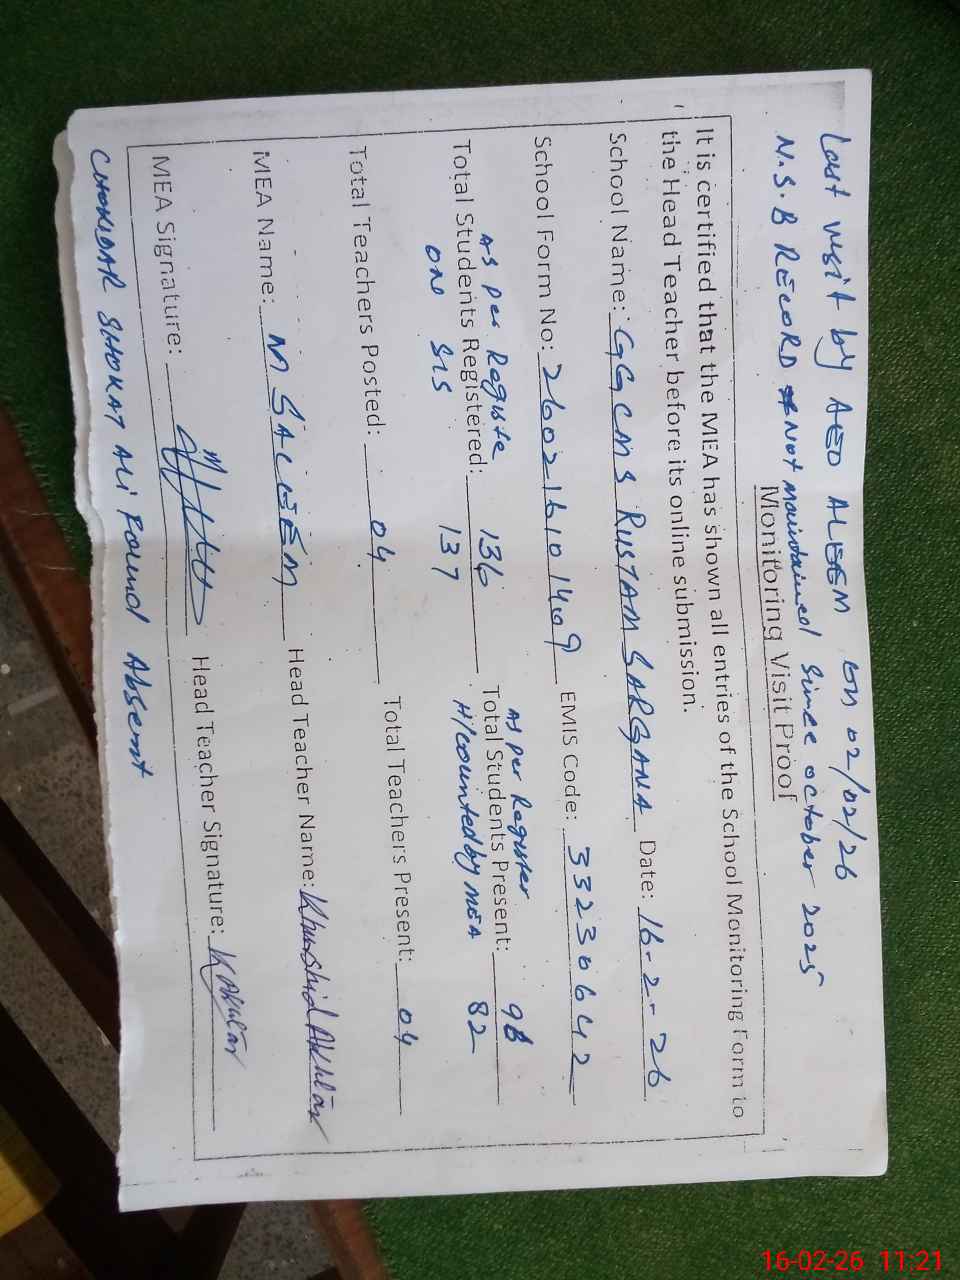 Last visit by AEO ALEEM on 02/02/26
N.S.B RECORD Not maintained since october 2025
Monitoring Visit Proof
It is certified that the MEA has shown all entries of the School Monitoring Form to
the Head Teacher before its online submission.
School Name: GGCMS RUSTAM SARGANA Date: 16-2-26
School Form No: 260216101409 EMIS Code: 33230642
As per Registe 136 As per Register 98
Total Students Registered: Total Students Present:
ON SIS 137 H/Counted by MEA 82
Total Teachers Posted: 04 Total Teachers Present: 04
MEA Name: M SALEEM Head Teacher Name: Khurshid Akhtar
MEA Signature: Head Teacher Signature: K Akhtar
CHOKIDAR SHOKAT ALI Found Absent
16-02-26 11:21